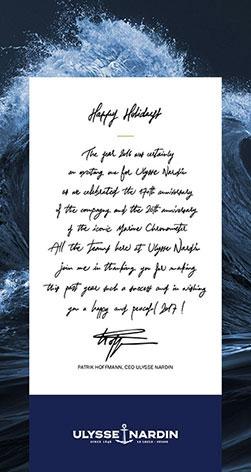 Happy Holidays
The year 2016 was certainly
an exciting one for Ulysse Nardin
as we celebrated the 170th anniversary
of the company and the 20th anniversary
of the iconic Marine Chronometer
All the teams here at Ulysse Nardin
join me in thanking you for making
this past year such a success and in wishing
you a happy and peaceful 2017!
PATRIK HOFFMANN, CEO ULYSSE NARDIN
ULYSSE NARDIN
SINCE 1846 LE LOCLE - SUISSE